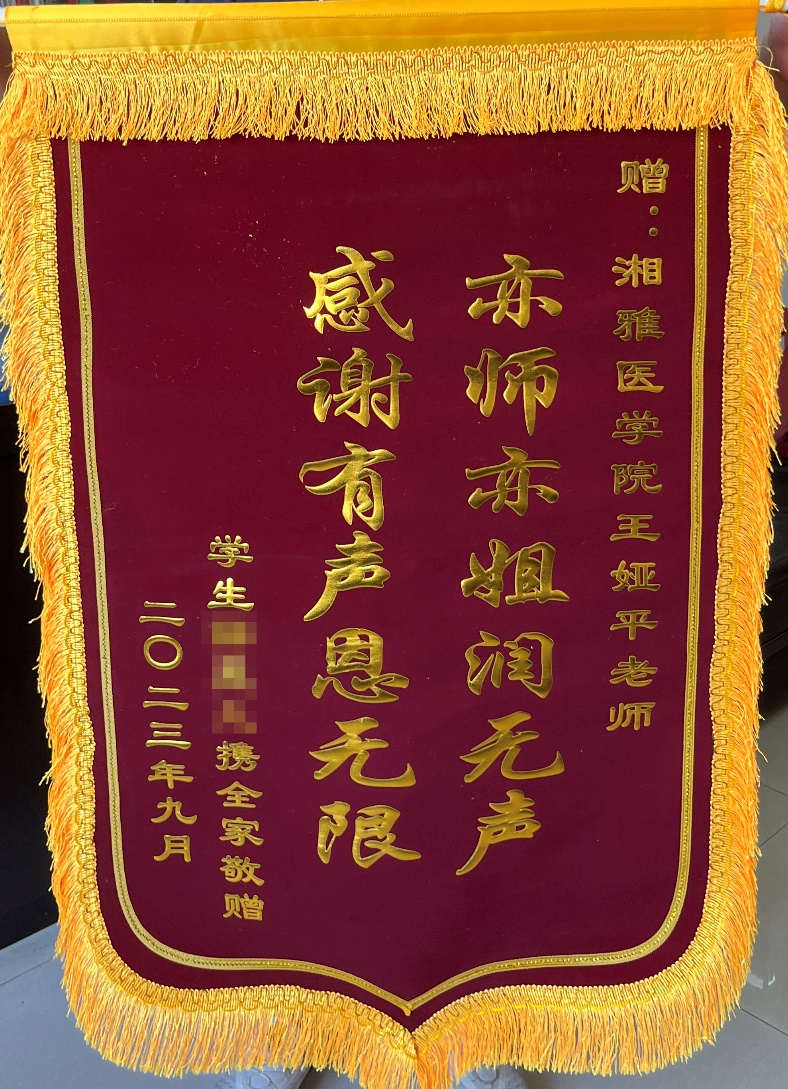 赠：湘雅医学院王娅平老师
亦师亦姐润无声
感谢有声恩无限
学生携全家敬赠
二〇二三年九月